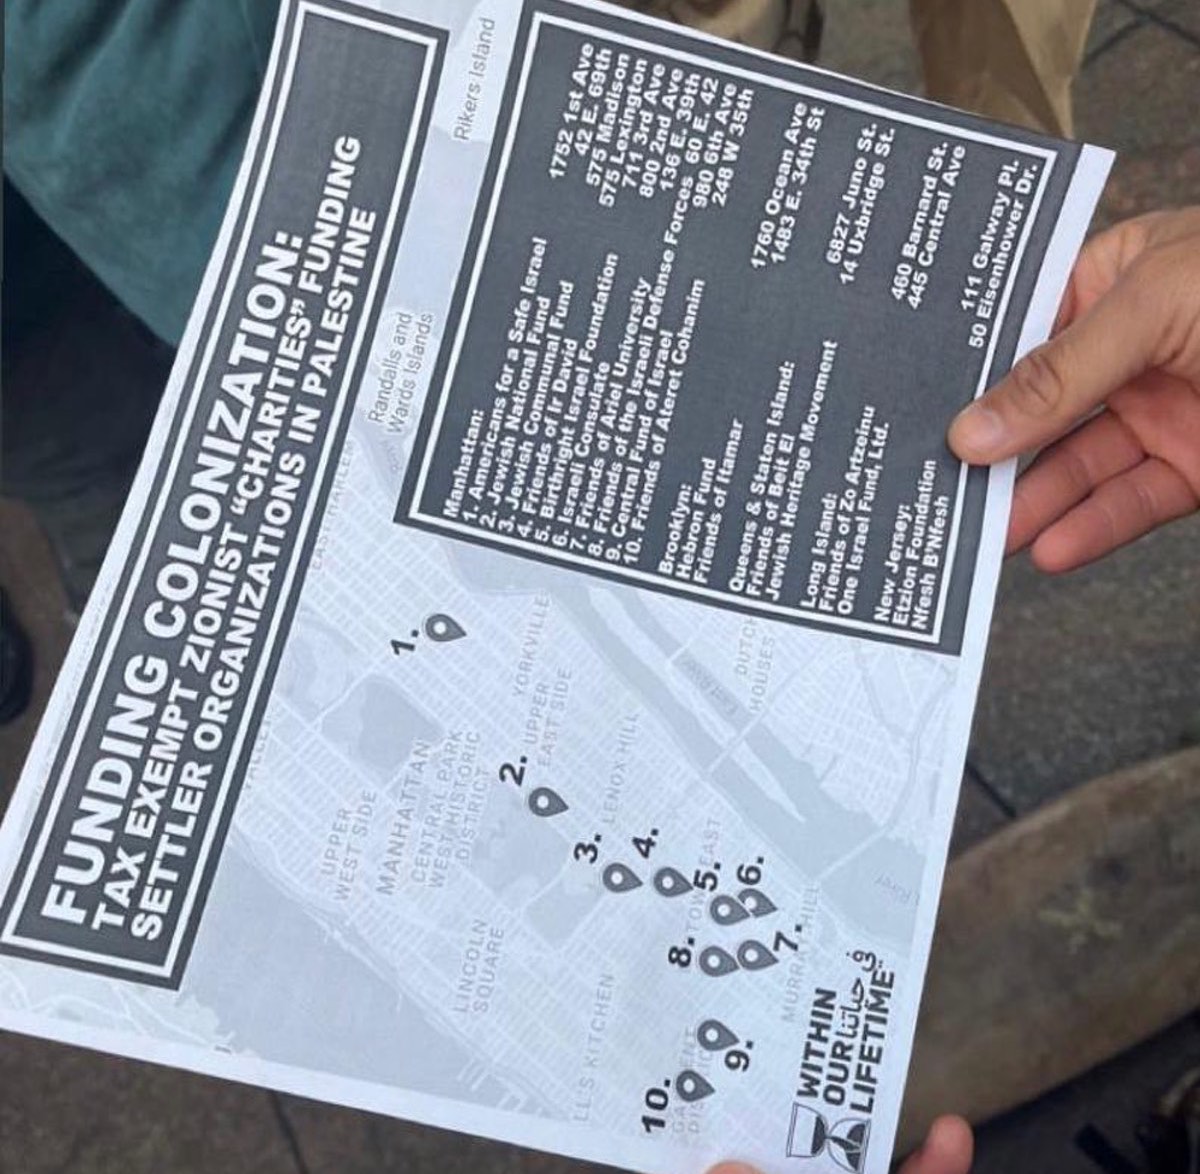 FUNDING COLONIZATION:
TAX EXEMPT ZIONIST "CHARITIES" FUNDING
SETTLER ORGANIZATIONS IN PALESTINE
Rikers Island
Randalls and
Wards Islands
Manhattan:
1. Americans for a Safe Israel 1752 1st Ave
2. Jewish National Fund 42 E. 69th
3. Jewish Communal Fund 575 Madison
4. Friends of Ir David 575 Lexington
5. Birthright Israel Foundation 711 3rd Ave
6. Israeli Consulate 800 2nd Ave
7. Friends of Ariel University 136 E. 39th
8. Friends of the Israeli Defense Forces 60 E. 42
9. Central Fund of Israel 980 6th Ave
10. Friends of Ateret Cohanim 248 W 35th
Brooklyn:
Hebron Fund 1760 Ocean Ave
Friends of Itamar 1483 E. 34th St
Queens & Staten Island:
Friends of Beit El 6827 Juno St.
Jewish Heritage Movement 14 Uxbridge St.
Long Island:
Friends of Zo Artzeinu 460 Barnard St.
One Israel Fund, Ltd. 445 Central Ave
New Jersey:
Etzion Foundation 111 Galway Pl.
Nfesh B'Nfesh 50 Eisenhower Dr.
EAST HARLEM
1.
YORKVILLE
UPPER
EAST SIDE
DUTCH
HOUSES
2.
UPPER
WEST SIDE
MANHATTAN
CENTRAL PARK
WEST HISTORIC
DISTRICT
LENOX HILL
3.
4.
5.
6.
EAST
LINCOLN
SQUARE
8.
7.
MURRAY HILL
River
LL'S KITCHEN
9.
10.
WITHIN
OUR في حياتنا
LIFETIME